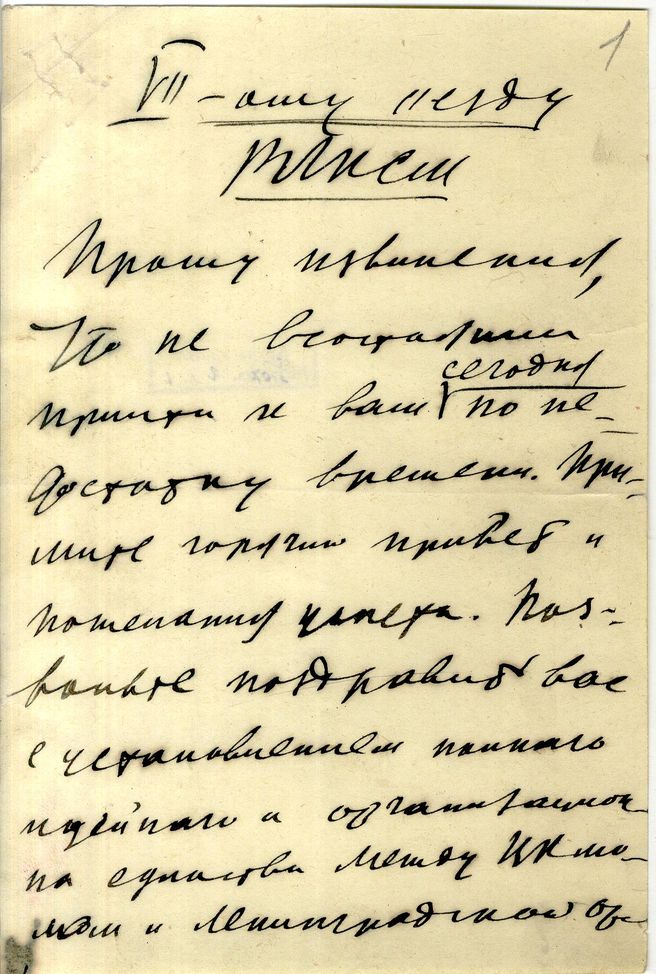 1
VII-ому съезду
ВЛКСМ
Прошу извинения,
что не в состоянии
сегодня
притти к вам по не-
достатку времени. При-
мите горячий привет и
пожелания успеха. Поз-
вольте поздравить вас
с установлением полного
идейного и организацион-
но единства между ЦК мо-
и Ленинградской ор-